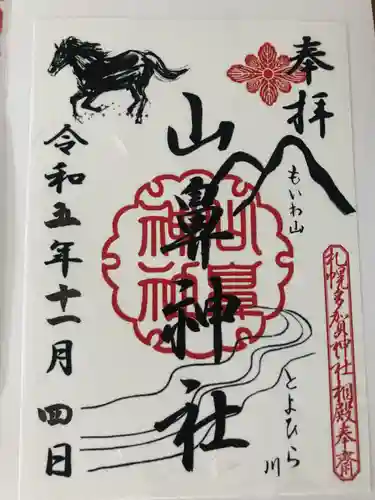 奉拝
もいわ山
札幌多賀神社相殿奉斎
山鼻神社
山鼻神社
とよひら川
令和五年十一月四日